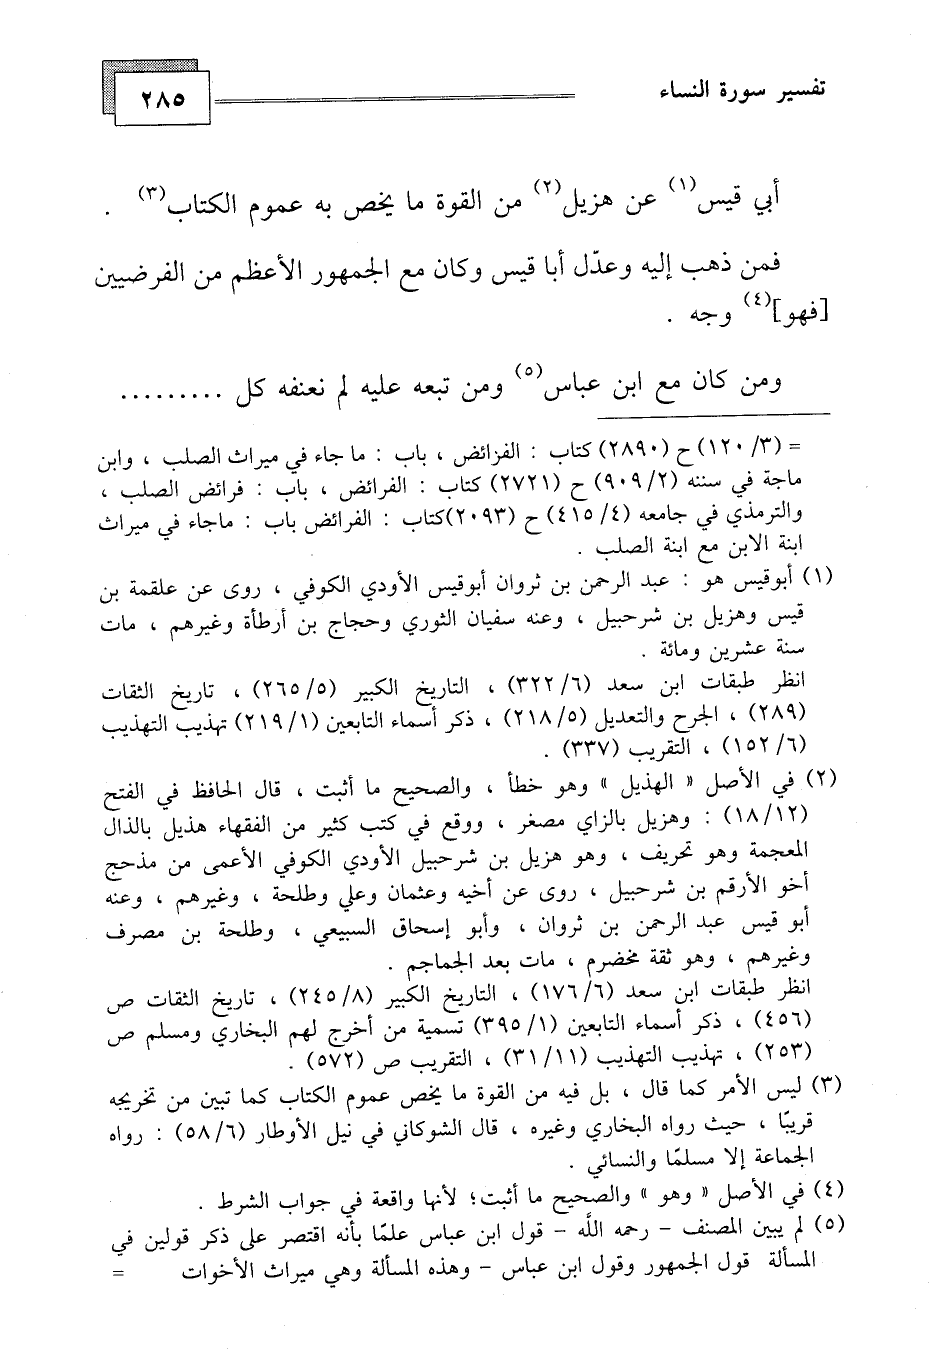 تفسير سورة النساء
٢٨٥
أبي قيس(١) عن هزيل(٢) من القوة ما يخص به عموم الكتاب(٣) .
فمن ذهب إليه وعدّل أبا قيس وكان مع الجمهور الأعظم من الفرضيين
[فهو](٤) وجه .
ومن كان مع ابن عباس(٥) ومن تبعه عليه لم نعنفه كل .........
= (٣/ ١٢٠) ح (٢٨٩٠) كتاب : الفرائض ، باب : ما جاء في ميراث الصلب ، وابن
ماجة في سننه (٢/ ٩٠٩) ح (٢٧٢١) كتاب : الفرائض ، باب : فرائض الصلب ،
والترمذي في جامعه (٤/ ٤١٥) ح (٢٠٩٣)كتاب : الفرائض باب : ماجاء في ميراث
ابنة الابن مع ابنة الصلب .
(١) أبوقيس هو : عبد الرحمن بن ثروان أبوقيس الأودي الكوفي ، روى عن علقمة بن
قيس وهزيل بن شرحبيل ، وعنه سفيان الثوري وحجاج بن أرطأة وغيرهم ، مات
سنة عشرين ومائة .
انظر طبقات ابن سعد (٦/ ٣٢٢) ، التاريخ الكبير (٥/ ٢٦٥) ، تاريخ الثقات
(٢٨٩) ، الجرح والتعديل (٥/ ٢١٨) ، ذكر أسماء التابعين (١/ ٢١٩) تهذيب التهذيب
(٦/ ١٥٢) ، التقريب (٣٣٧) .
(٢) في الأصل « الهذيل » وهو خطأ ، والصحيح ما أثبت ، قال الحافظ في الفتح
(١٢/ ١٨) : وهزيل بالزاي مصغر ، ووقع في كتب كثير من الفقهاء هذيل بالذال
المعجمة وهو تحريف ، وهو هزيل بن شرحبيل الأودي الكوفي الأعمى من مذحج
أخو الأرقم بن شرحبيل ، روى عن أخيه وعثمان وعلي وطلحة ، وغيرهم ، وعنه
أبو قيس عبد الرحمن بن ثروان ، وأبو إسحاق السبيعي ، وطلحة بن مصرف
وغيرهم ، وهو ثقة مخضرم ، مات بعد الجماجم .
انظر طبقات ابن سعد (٦/ ١٧٦) ، التاريخ الكبير (٨/ ٢٤٥) ، تاريخ الثقات ص
(٤٥٦) ، ذكر أسماء التابعين (١/ ٣٩٥) تسمية من أخرج لهم البخاري ومسلم ص
(٢٥٣) ، تهذيب التهذيب (١١/ ٣١) ، التقريب ص (٥٧٢) .
(٣) ليس الأمر كما قال ، بل فيه من القوة ما يخص عموم الكتاب كما تبين من تخريجه
قريبًا ، حيث رواه البخاري وغيره ، قال الشوكاني في نيل الأوطار (٦/ ٥٨) : رواه
الجماعة إلا مسلمًا والنسائي .
(٤) في الأصل « وهو » والصحيح ما أثبت؛ لأنها واقعة في جواب الشرط .
(٥) لم يبين المصنف - رحمه اللَّه - قول ابن عباس علمًا بأنه اقتصر على ذكر قولين في
المسألة قول الجمهور وقول ابن عباس - وهذه المسألة وهي ميراث الأخوات =